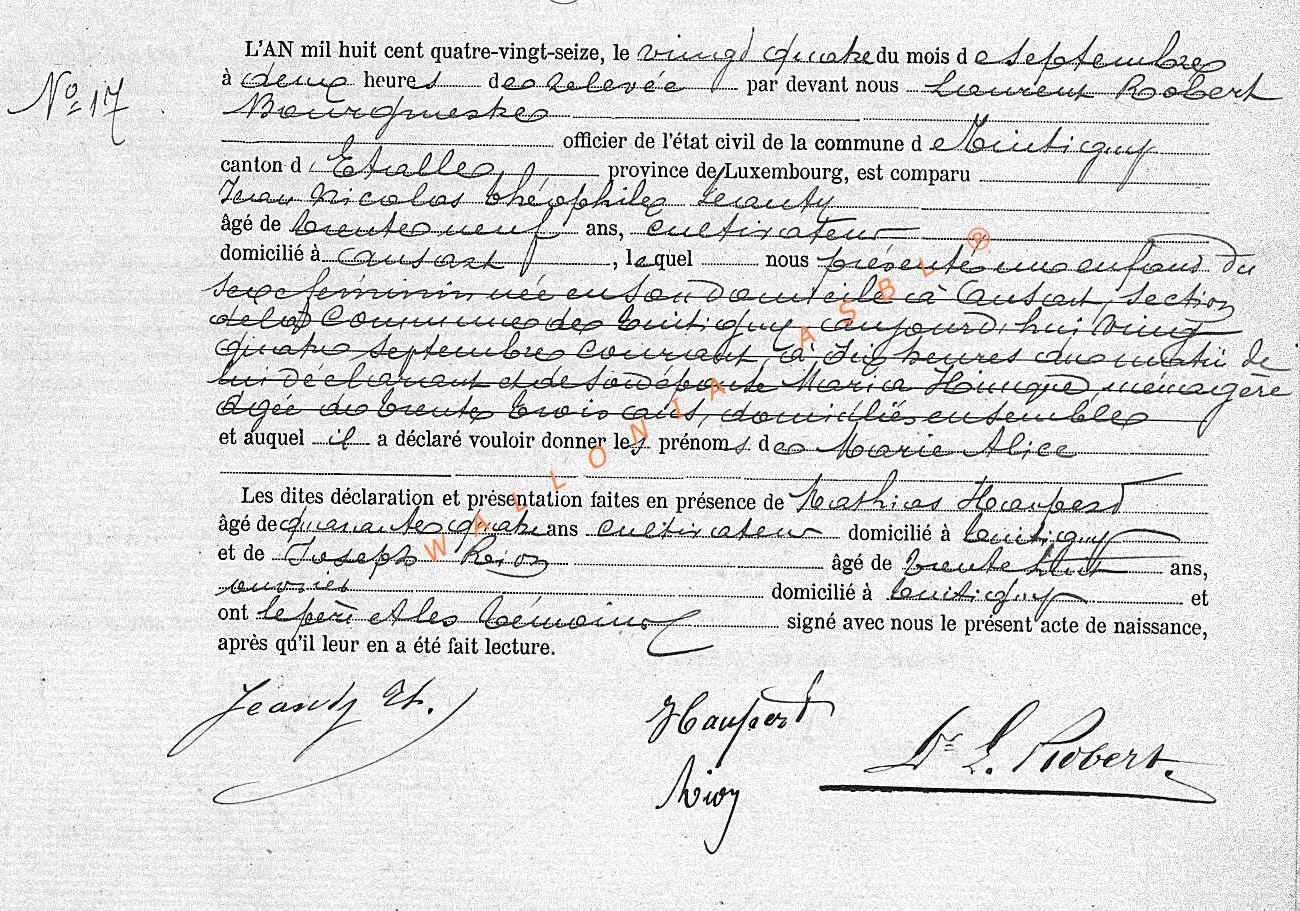 L'AN mil huit cent quatre-vingt-seize, le vingt quatre du mois de septembre
No 17
à deux heures de relevée par devant nous Laurent Robert
Bourgmestre
officier de l'état civil de la commune de Tintigny
canton d'Etalle, province de Luxembourg, est comparu
Jean Nicolas Théophile Jeanty
âgé de trente neuf ans, cultivateur
domicilié à Ansart, lequel nous présenté un enfant du
sexe féminin née en son domicile à Ansart, section
de la Commune de Tintigny aujourd'hui vingt
quatre septembre courant, à dix heures du matin de
lui déclarant et de son épouse Maria Hinque, ménagère
agée de trente trois ans, domiciliés ensemble
et auquel il a déclaré vouloir donner les prénoms de Marie Alice
Les dites déclaration et présentation faites en présence de Mathias Haupert
âgé de quarante quatre ans cultivateur domicilié à Tintigny
et de Joseph Rion âgé de trente huit ans,
ouvrier domicilié à Tintigny et
ont le père et les témoins signé avec nous le présent acte de naissance,
après qu'il leur en a été fait lecture.
Jeanty Th.
Haupert
Dr L. Robert.
Rion
WALLONIA ASBL ®